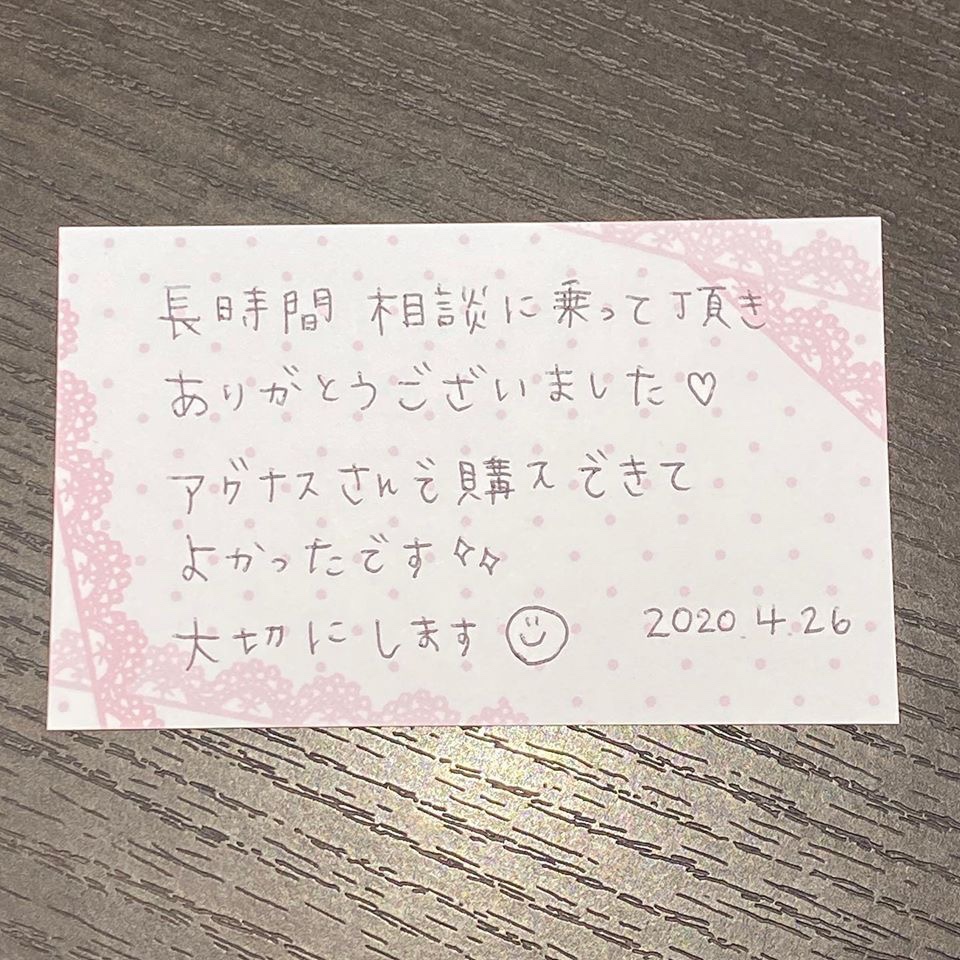 長時間 相談に乗って頂き
ありがとうございました♡
アヴナスさんで購入できて
よかったです✧✧
大切にします☺ 2020.4.26